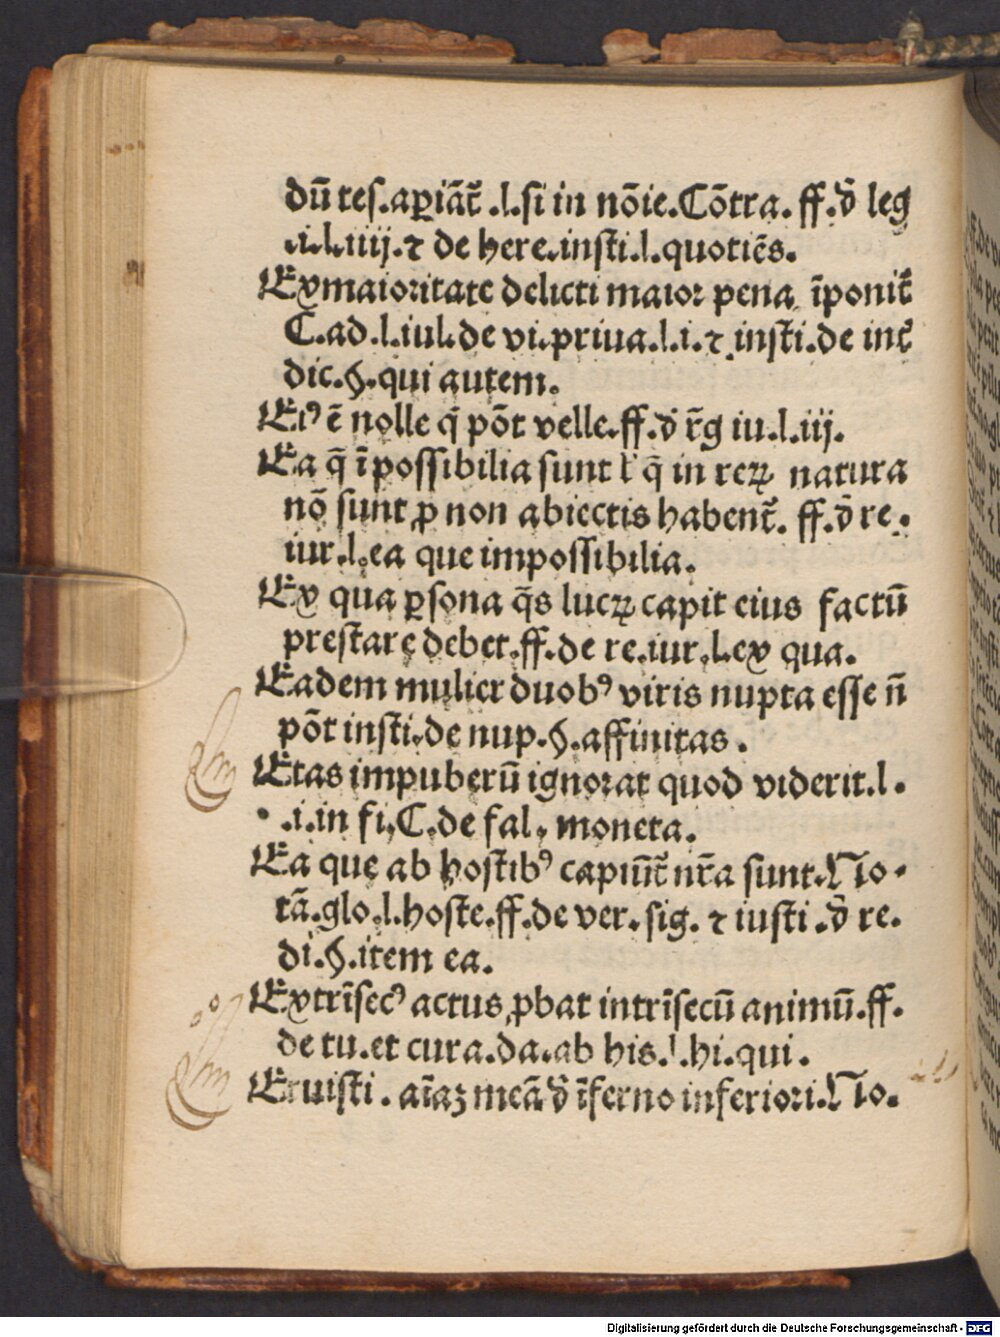 dū tes.aꝑiāt᷑.l.si in nōie.Cōtra.ff.đ leg
.i.l.iiij.⁊ de here.insti.l.quotiēs.
Exmaioritate delicti maior pena īponit᷑
C.ad.l.iul.de vi.priua.l.i.⁊.insti.de inỉ
dic.§.qui autem.
Eiꝰ ē nolle q̄ pōt velle.ff.đ r̄g iu.l.iij.
Ea q̄ īpossibilia sunt ł q̄ in reꝝ natura
nō sunt ꝓ non abiectis habent᷑. ff.đ re.
iur.l.ea que impossibilia.
Ex qua ꝑsona q̄s lucꝝ capit eius factū
prestare debet.ff.de re.iur.l.ex qua.
Eadem mulier duobꝰ viris nupta esse n̄
pōt insti.de nup.§.affinitas.
Etas impuberū ignorat quod viderit.l.
.i.in fi.C.de fal. moneta.
Ea que ab hostibꝰ capiūt᷑ nr̄a sunt.No.
tā.glo.l.hoste.ff.de ver.sig. ⁊ iusti.đ re.
di.§.item ea.
Extrīsecꝰ actus ꝓbat intrīsecū animū.ff.
de tu.et cura.da.ab his.l.hi.qui.
Eruisti. aīaʒ meā đ īferno inferiori.No.
Digitalisierung gefördert durch die Deutsche Forschungsgemeinschaft - DFG